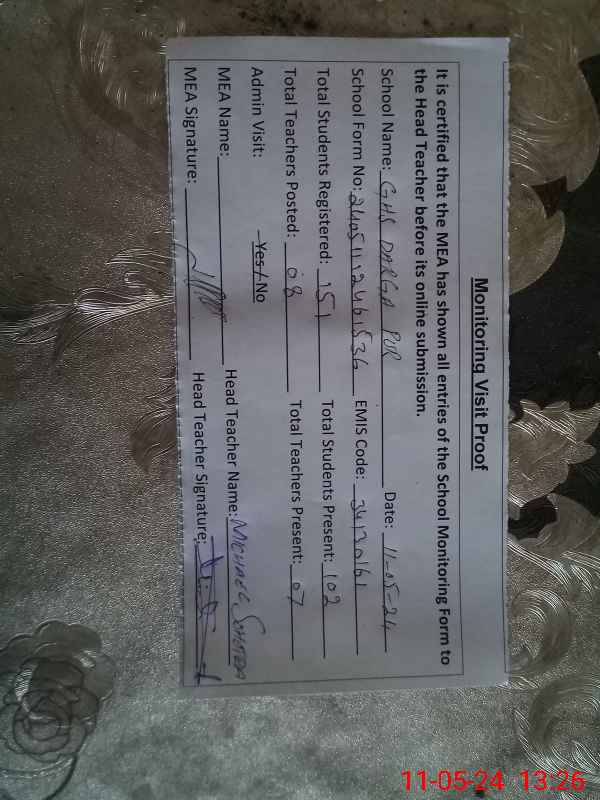 Monitoring Visit Proof
It is certified that the MEA has shown all entries of the School Monitoring Form to
the Head Teacher before its online submission.
School Name: GHS DARGA PUR Date: 11-05-24
School Form No: 24051112461536 EMIS Code: 34130161
Total Students Registered: 151 Total Students Present: 102
Total Teachers Posted: 08 Total Teachers Present: 07
Admin Visit: Yes / No
MEA Name: Head Teacher Name: MICHAEL
MEA Signature: Head Teacher Signature:
11-05-24 13:26